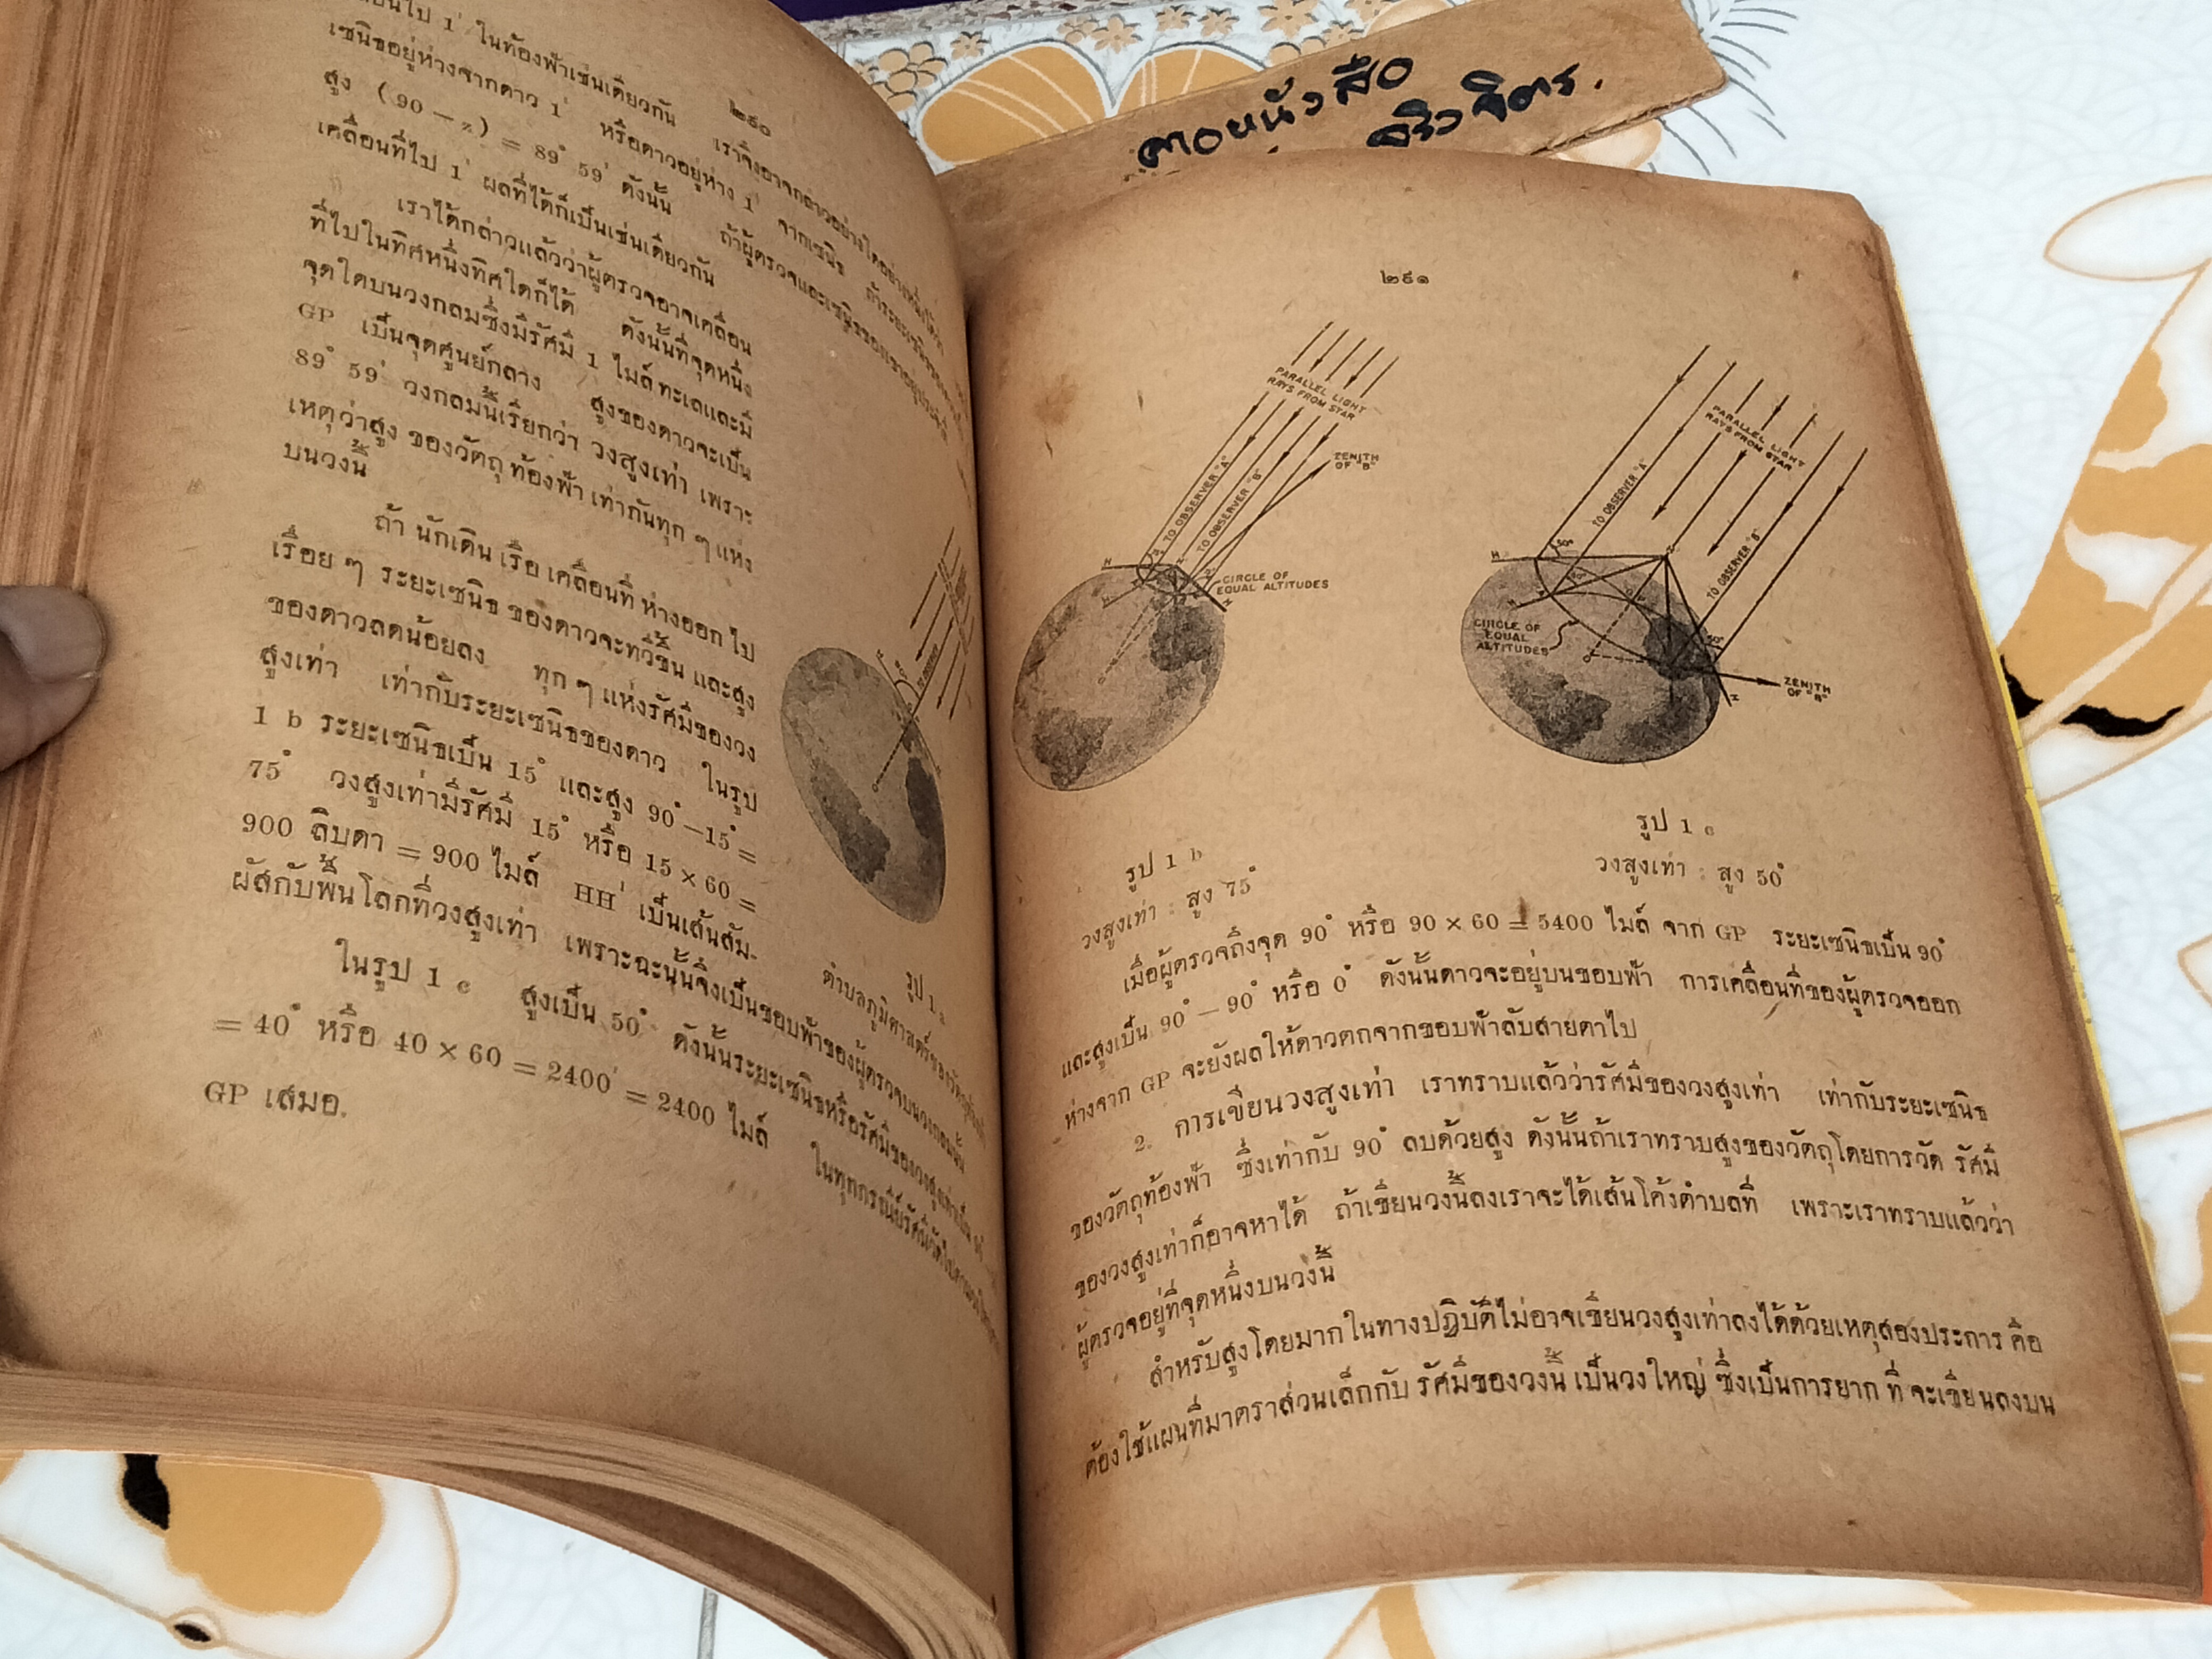 ๒๕๐
เคลื่อนไป 1' ในท้องฟ้าเช่นเดียวกัน เราจึงอาจกล่าวอย่างใดอย่างหนึ่งได้ว่า
เซนิธอยู่ห่างจากดาว 1' หรือดาวอยู่ห่าง 1' จากเซนิธ ถ้าระยะเซนิธของดาวเป็น
สูง (90 – z) = 89° 59' ดังนั้น ถ้าผู้ตรวจและเซนิธของเขา
เคลื่อนที่ไป 1' ผลที่ได้ก็เป็นเช่นเดียวกัน
เราได้กล่าวแล้วว่าผู้ตรวจอาจเคลื่อน
ที่ไปในทิศหนึ่งทิศใดก็ได้ ดังนั้นที่จุดหนึ่ง
จุดใดบนวงกลมซึ่งมีรัศมี 1 ไมล์ทะเลและมี
GP เป็นจุดศูนย์กลาง สูงของดาวจะเป็น
89° 59' วงกลมนี้เรียกว่า วงสูงเท่า เพราะ
เหตุว่าสูง ของวัตถุ ท้องฟ้า เท่ากันทุก ๆ แห่ง
บนวงนี้
ถ้า นักเดิน เรือ เคลื่อนที่ ห่างออก ไป
เรื่อย ๆ ระยะเซนิธ ของดาวจะทวีขึ้น และสูง
ของดาวลดน้อยลง ทุก ๆ แห่งรัศมีของวง
สูงเท่า เท่ากับระยะเซนิธของดาว ในรูป
1 b ระยะเซนิธเป็น 15° และสูง 90° – 15° =
75° วงสูงเท่ามีรัศมี 15° หรือ 15 × 60 =
900 ลิบดา = 900 ไมล์ HH' เป็นเส้นสัม-
รูป 1 a
ตำบลภูมิศาสตร์ของวัตถุท้องฟ้า
ผัสกับพื้นโลกที่วงสูงเท่า เพราะฉะนั้นจึงเป็นขอบฟ้าของผู้ตรวจบนวงกลมนั้น
ในรูป 1 c สูงเป็น 50° ดังนั้นระยะเซนิธหรือรัศมีของวงสูงเท่าเป็น
= 40° หรือ 40 × 60 = 2400' = 2400 ไมล์ ในทุกกรณีย์รัศมีวัดไปตามผิวโลกจาก
GP เสมอ.
คอยหนังสือ
๒๕๑
PARALLEL LIGHT
RAYS FROM STAR
TO OBSERVER "A"
TO OBSERVER "B"
ZENITH
OF "B"
H
CIRCLE OF
EQUAL ALTITUDES
PARALLEL LIGHT
RAYS FROM STAR
TO OBSERVER "A"
TO OBSERVER "B"
H
50°
CIRCLE OF
EQUAL
ALTITUDES
50°
ZENITH
OF "B"
H
รูป 1 b
วงสูงเท่า : สูง 75°
รูป 1 c
วงสูงเท่า : สูง 50°
เมื่อผู้ตรวจถึงจุด 90° หรือ 90 × 60 = 5400 ไมล์ จาก GP ระยะเซนิธเป็น 90°
และสูงเป็น 90° – 90° หรือ 0° ดังนั้นดาวจะอยู่บนขอบฟ้า การเคลื่อนที่ของผู้ตรวจออก
ห่างจาก GP จะยังผลให้ดาวตกจากขอบฟ้าลับสายตาไป
2. การเขียนวงสูงเท่า เราทราบแล้วว่ารัศมีของวงสูงเท่า เท่ากับระยะเซนิธ
ของวัตถุท้องฟ้า ซึ่งเท่ากับ 90° ลบด้วยสูง ดังนั้นถ้าเราทราบสูงของวัตถุโดยการวัด รัศมี
ของวงสูงเท่าก็อาจหาได้ ถ้าเขียนวงนี้ลงเราจะได้เส้นโค้งตำบลที่ เพราะเราทราบแล้วว่า
ผู้ตรวจอยู่ที่จุดหนึ่งบนวงนี้
สำหรับสูงโดยมาก ในทางปฏิบัติไม่อาจเขียนวงสูงเท่าลงได้ด้วยเหตุสองประการ คือ
ต้องใช้แผนที่มาตราส่วนเล็กกับ รัศมีของวงนี้ เป็นวงใหญ่ ซึ่งเป็นการยาก ที่ จะเขียนลงบน